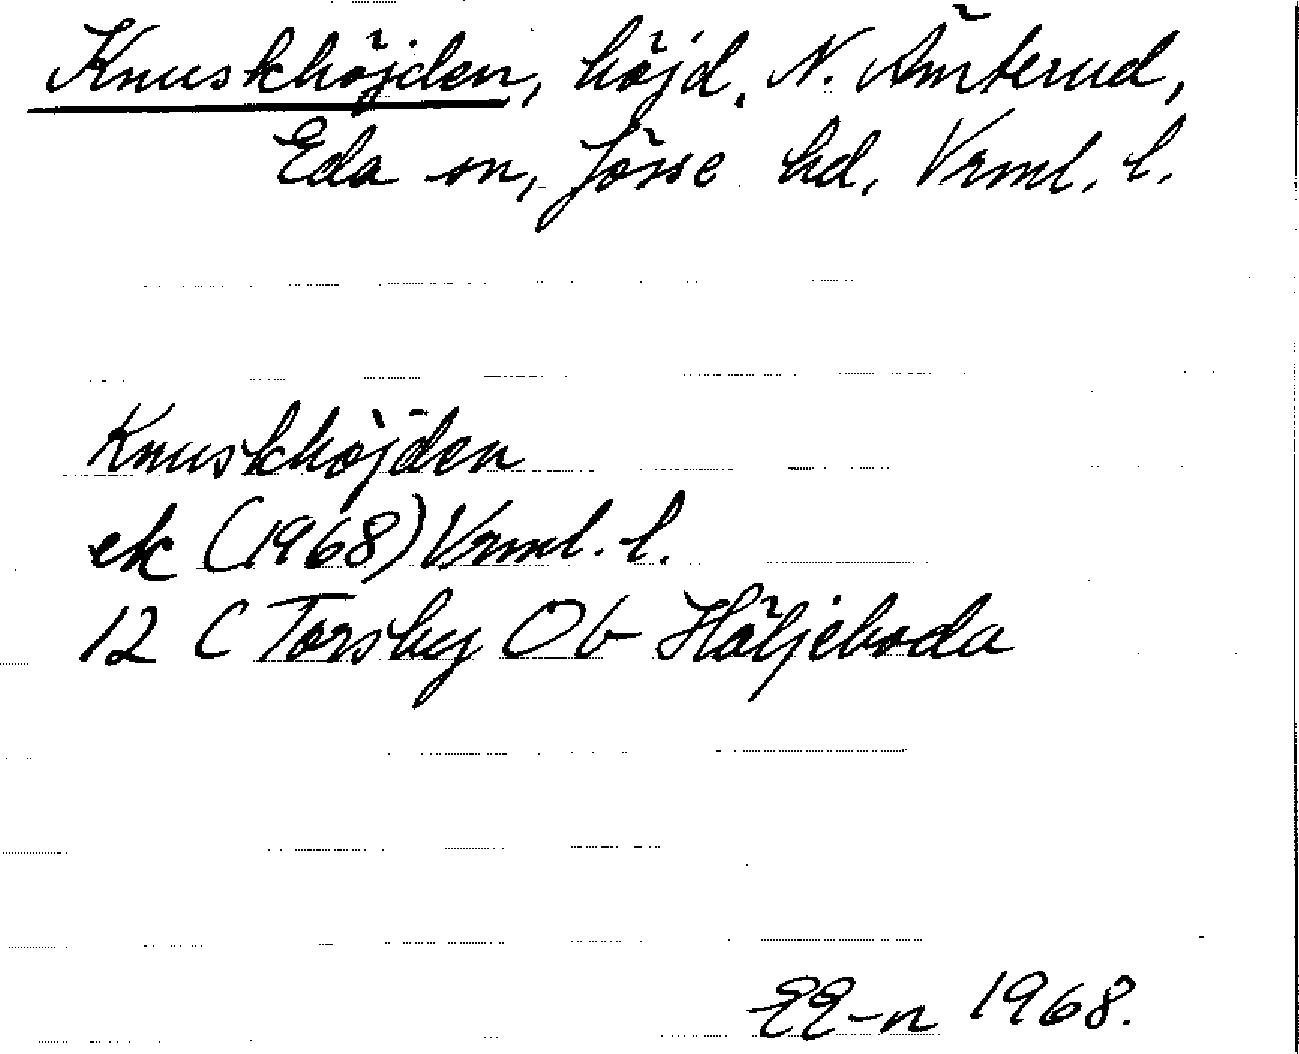 Knuskhöjden, höjd, N. Ämterud,
Eda sn, Jösse hd, Vrml. l.
Knuskhöjden
ek (1968) Vrml. l.
12 C Torsby Ob Häljeboda
EE-n 1968.